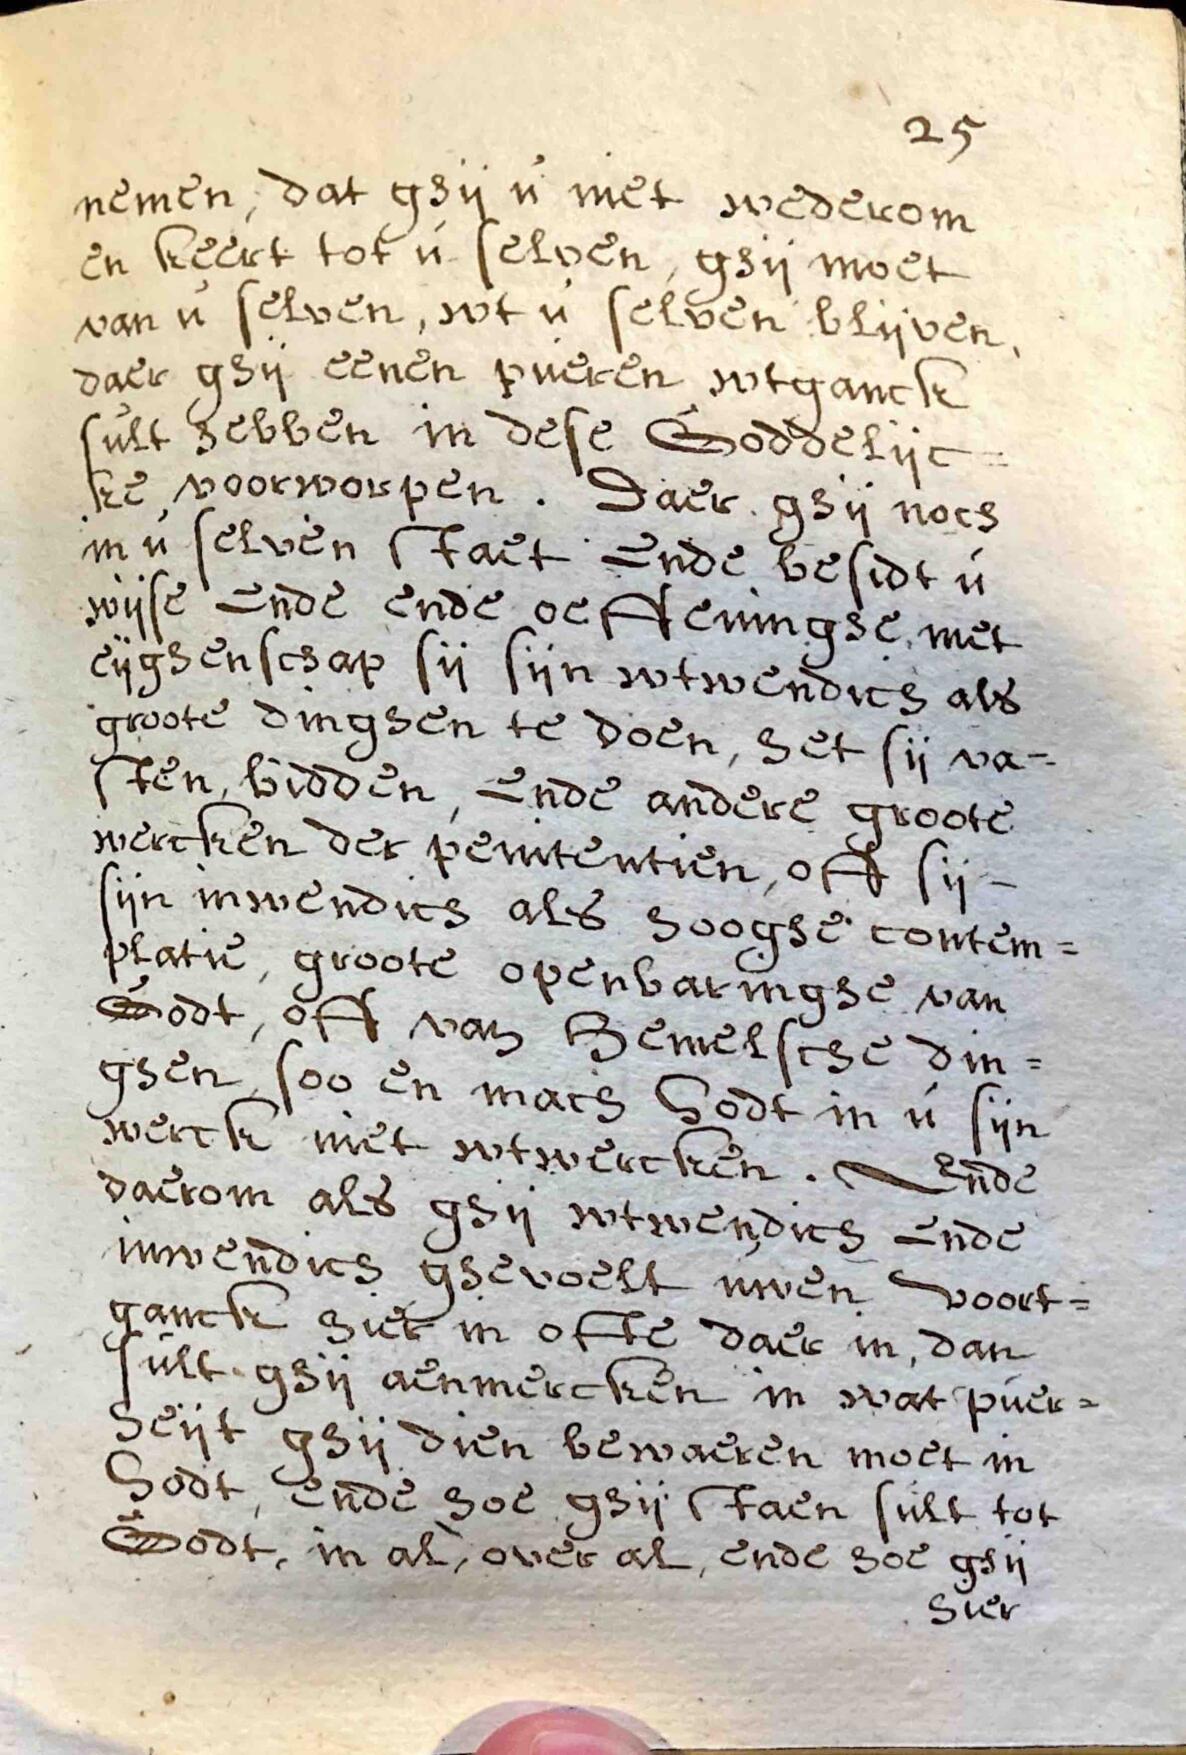 25
nemen, dat ghij ú niet wederom
en keert tot ú selven, ghij moet
van ú selven, wt ú selven blijven,
daer ghij eenen púeren wtganck
súlt hebben in dese Goddelijc=
ke voorworpen. Daer ghij noch
in ú selven staet Ende besidt ú
wijse Ende ende oeffeninghe met
eijghenschap sij sijn wtwendich als
groote dinghen te doen, het sij va-
sten, bidden, Ende andere groote
wercken der penitentien, off sij-
sijn inwendich als hooghe contem=
platie, groote openbaringhe van
Godt, off van Hemelsche din=
ghen, soo en mach Godt in ú sijn
werck niet wtwercken. Ende
daerom als ghij wtwendich Ende
inwendich ghevoelt uwen voort=
ganck hier in ofte daer in, dan
súlt ghij aenmercken in wat púer=
heijt ghij dien bewaeren moet in
Godt, ende hoe ghij staen súlt tot
Godt, in al, over al, ende hoe ghij
hier